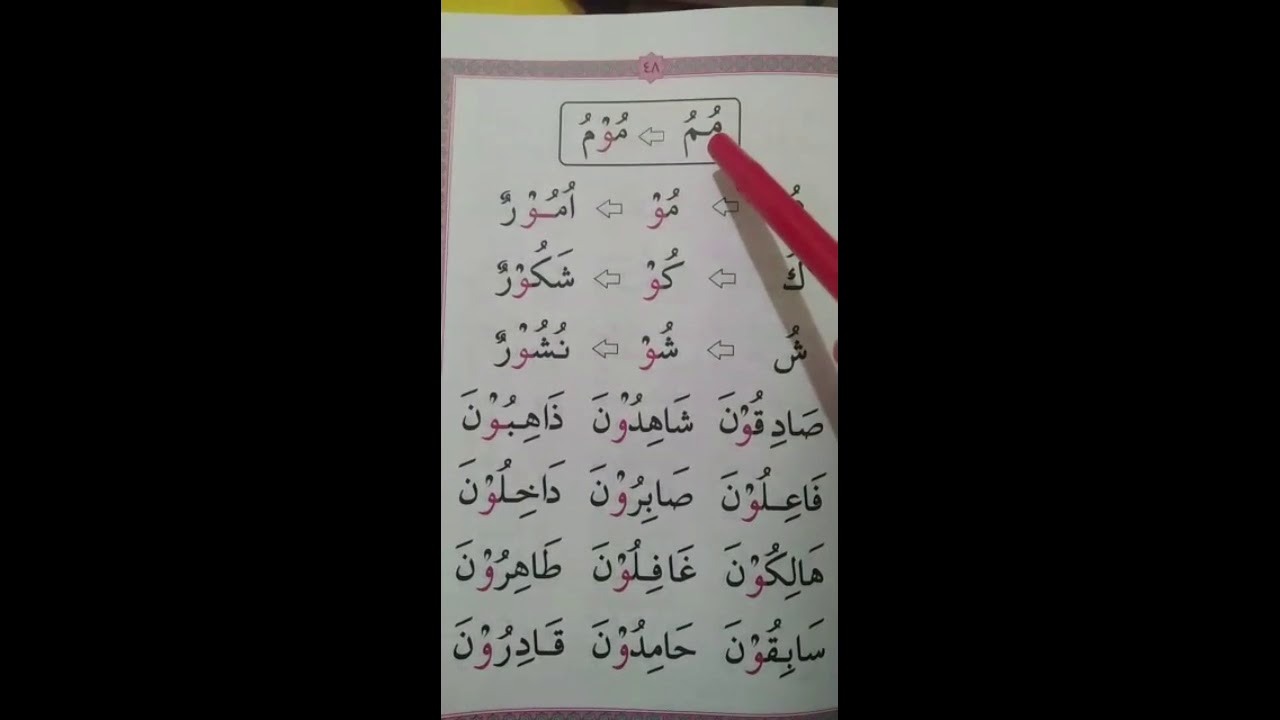 ٤٨
مُمُ ⇦ مُوْمُ
⇦ مُوْ ⇦ اُمُوْرٌ
كُ ⇦ كُوْ ⇦ شَكُوْرٌ
شُ ⇦ شُوْ ⇦ نُشُوْرٌ
صَادِقُوْنَ شَاهِدُوْنَ ذَاهِبُوْنَ
فَاعِلُوْنَ صَابِرُوْنَ دَاخِلُوْنَ
هَالِكُوْنَ غَافِلُوْنَ طَاهِرُوْنَ
سَابِقُوْنَ حَامِدُوْنَ قَادِرُوْنَ